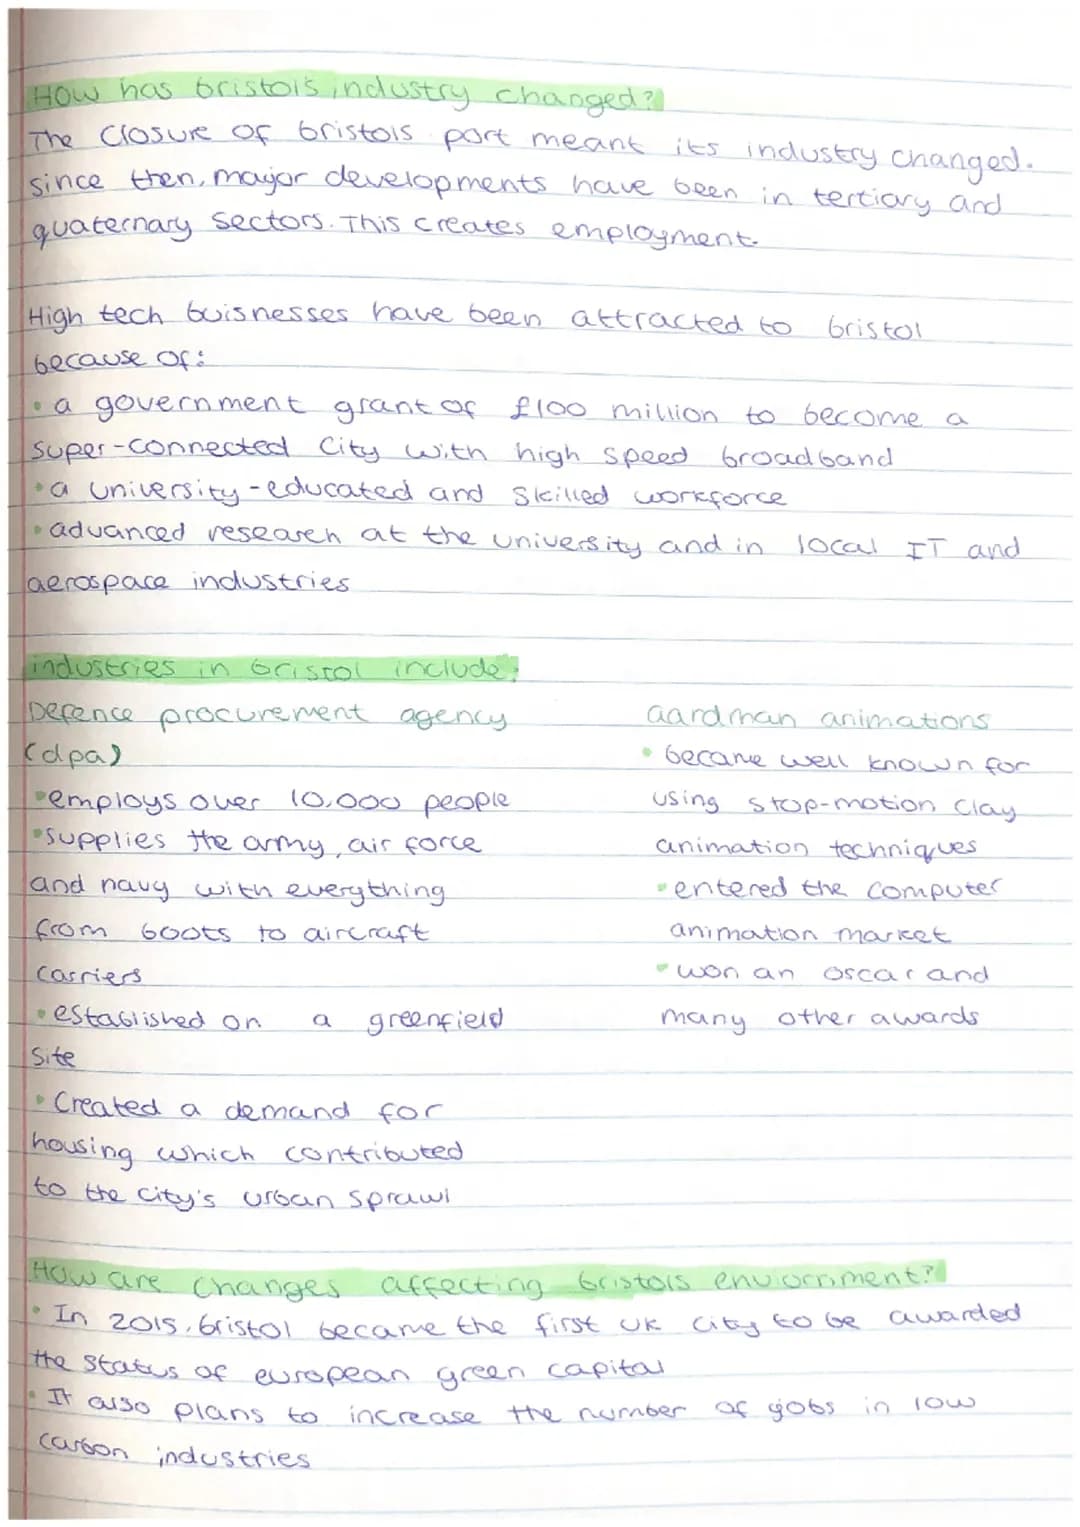 How has bristol's industry changed?
The Closure of bristols port meant its industry changed.
since then, major developments have been in tertiary and
quaternary sectors. This creates employment.
High tech buisnesses have been attracted to bristol
because of:
• a government grant of £100 million to become a
super-connected City with high speed broadband
• a university-educated and skilled workforce
• advanced research at the university and in local IT and
aerospace industries
industries in bristol include:
Defence procurement agency
(dpa)
• employs over 10,000 people
• supplies the army, air force
and navy with everything
from boots to aircraft
carriers
• established on a greenfield
site
• Created a demand for
housing which contributed
to the city's urban sprawl
aardman animations
• became well known for
using stop-motion clay
animation techniques
• entered the computer
animation market
• won an oscar and
many other awards
How are changes affecting bristols enviornment?
• In 2015, bristol became the first UK city to be awarded
the status of european green capital
• It also plans to increase the number of jobs in low
carbon industries